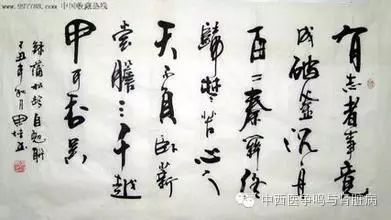 www.997788.com 中国收藏热线
有志者事竟
成破釜沉舟
百二秦關終
歸楚苦心人
天不負臥薪
嘗膽三千越
甲可吞吴
錄蒲松龄自勉联
己丑年秋月
中西医争鸣与肾脏病